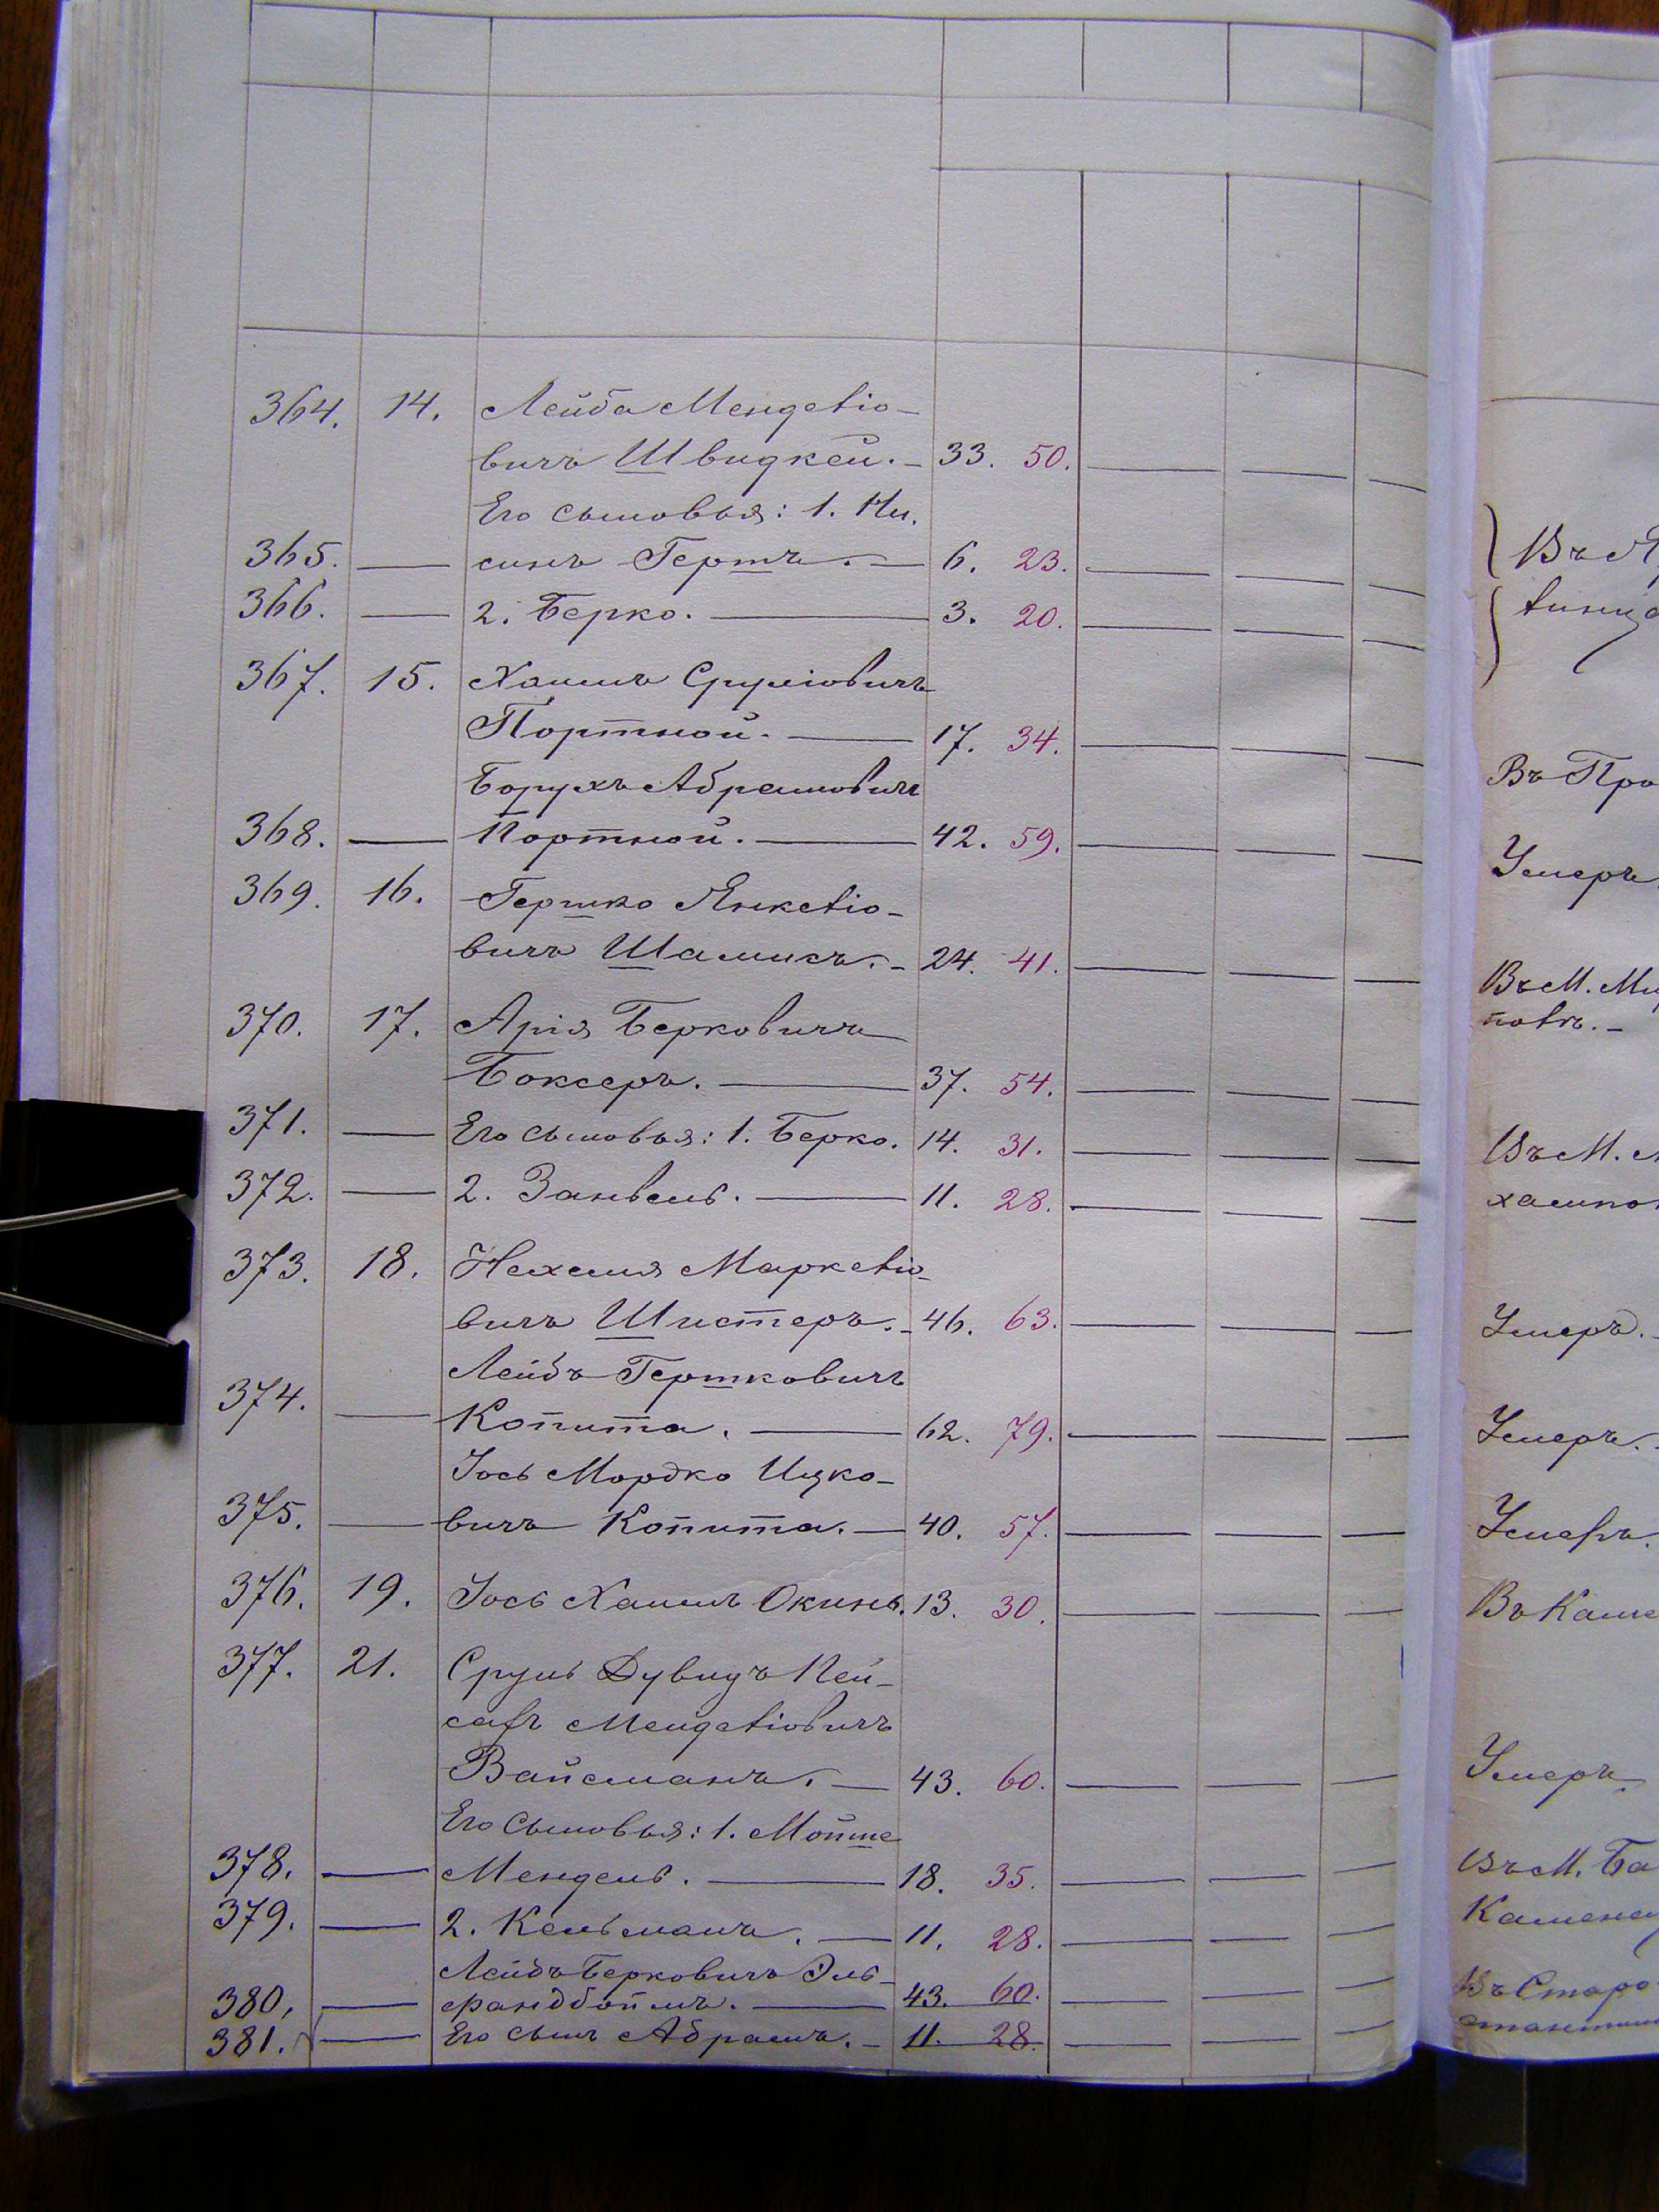 364. 14. Лейба Менделіо-
вичъ Швидкей. - 33. 50.
Его сыновья: 1. Ни-
365. — синъ Гершъ. — 6. 23.
366. — 2. Берко. — 3. 20.
367. 15. Хаимъ Сруліовичъ
Портной. — 17. 34.
Борухъ Абрамовичъ
368. — Портной. — 42. 59.
369. 16. Гершко Янкеліо-
вичъ Шамисъ. - 24. 41.
370. 17. Арія Берковичъ
Боксеръ. — 37. 54.
371. — Его сыновья: 1. Берко. 14. 31.
372. — 2. Занвель. — 11. 28.
373. 18. Нехемія Маркеліо-
вичъ Шистеръ. - 46. 63.
Лейбъ Гершковичъ
374. — Копита. — 62. 79.
Іось Мордко Ицко-
375. — вичъ Копита. — 40. 57.
376. 19. Іось Хаимъ Окинь. 13. 30.
377. 21. Сруль Дувидъ Пей-
сахъ Менделіовичъ
Вайсманъ. — 43. 60.
Его сыновья: 1. Мойше
378. — Мендель. — 18. 35.
379. — 2. Кельманъ. — 11. 28.
Лейбъ Берковичъ Эль-
380. — фандбоймъ. — 43. 60.
381. — Его сынъ Абрамъ. - 11. 28.
Въ
Въ Про
Умеръ.
Въ М. Ми
полѣ. -
Въ М.
Умеръ. -
Умеръ. -
Умеръ.
Въ Каме
Умеръ.
Въ М. Ба
Камене
Въ Старо